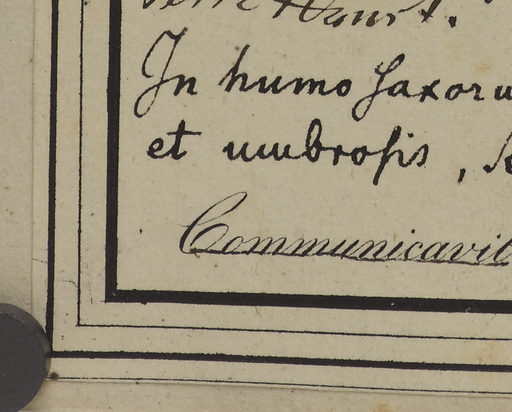 In humo saxoru
et umbrosis,
Communicavit